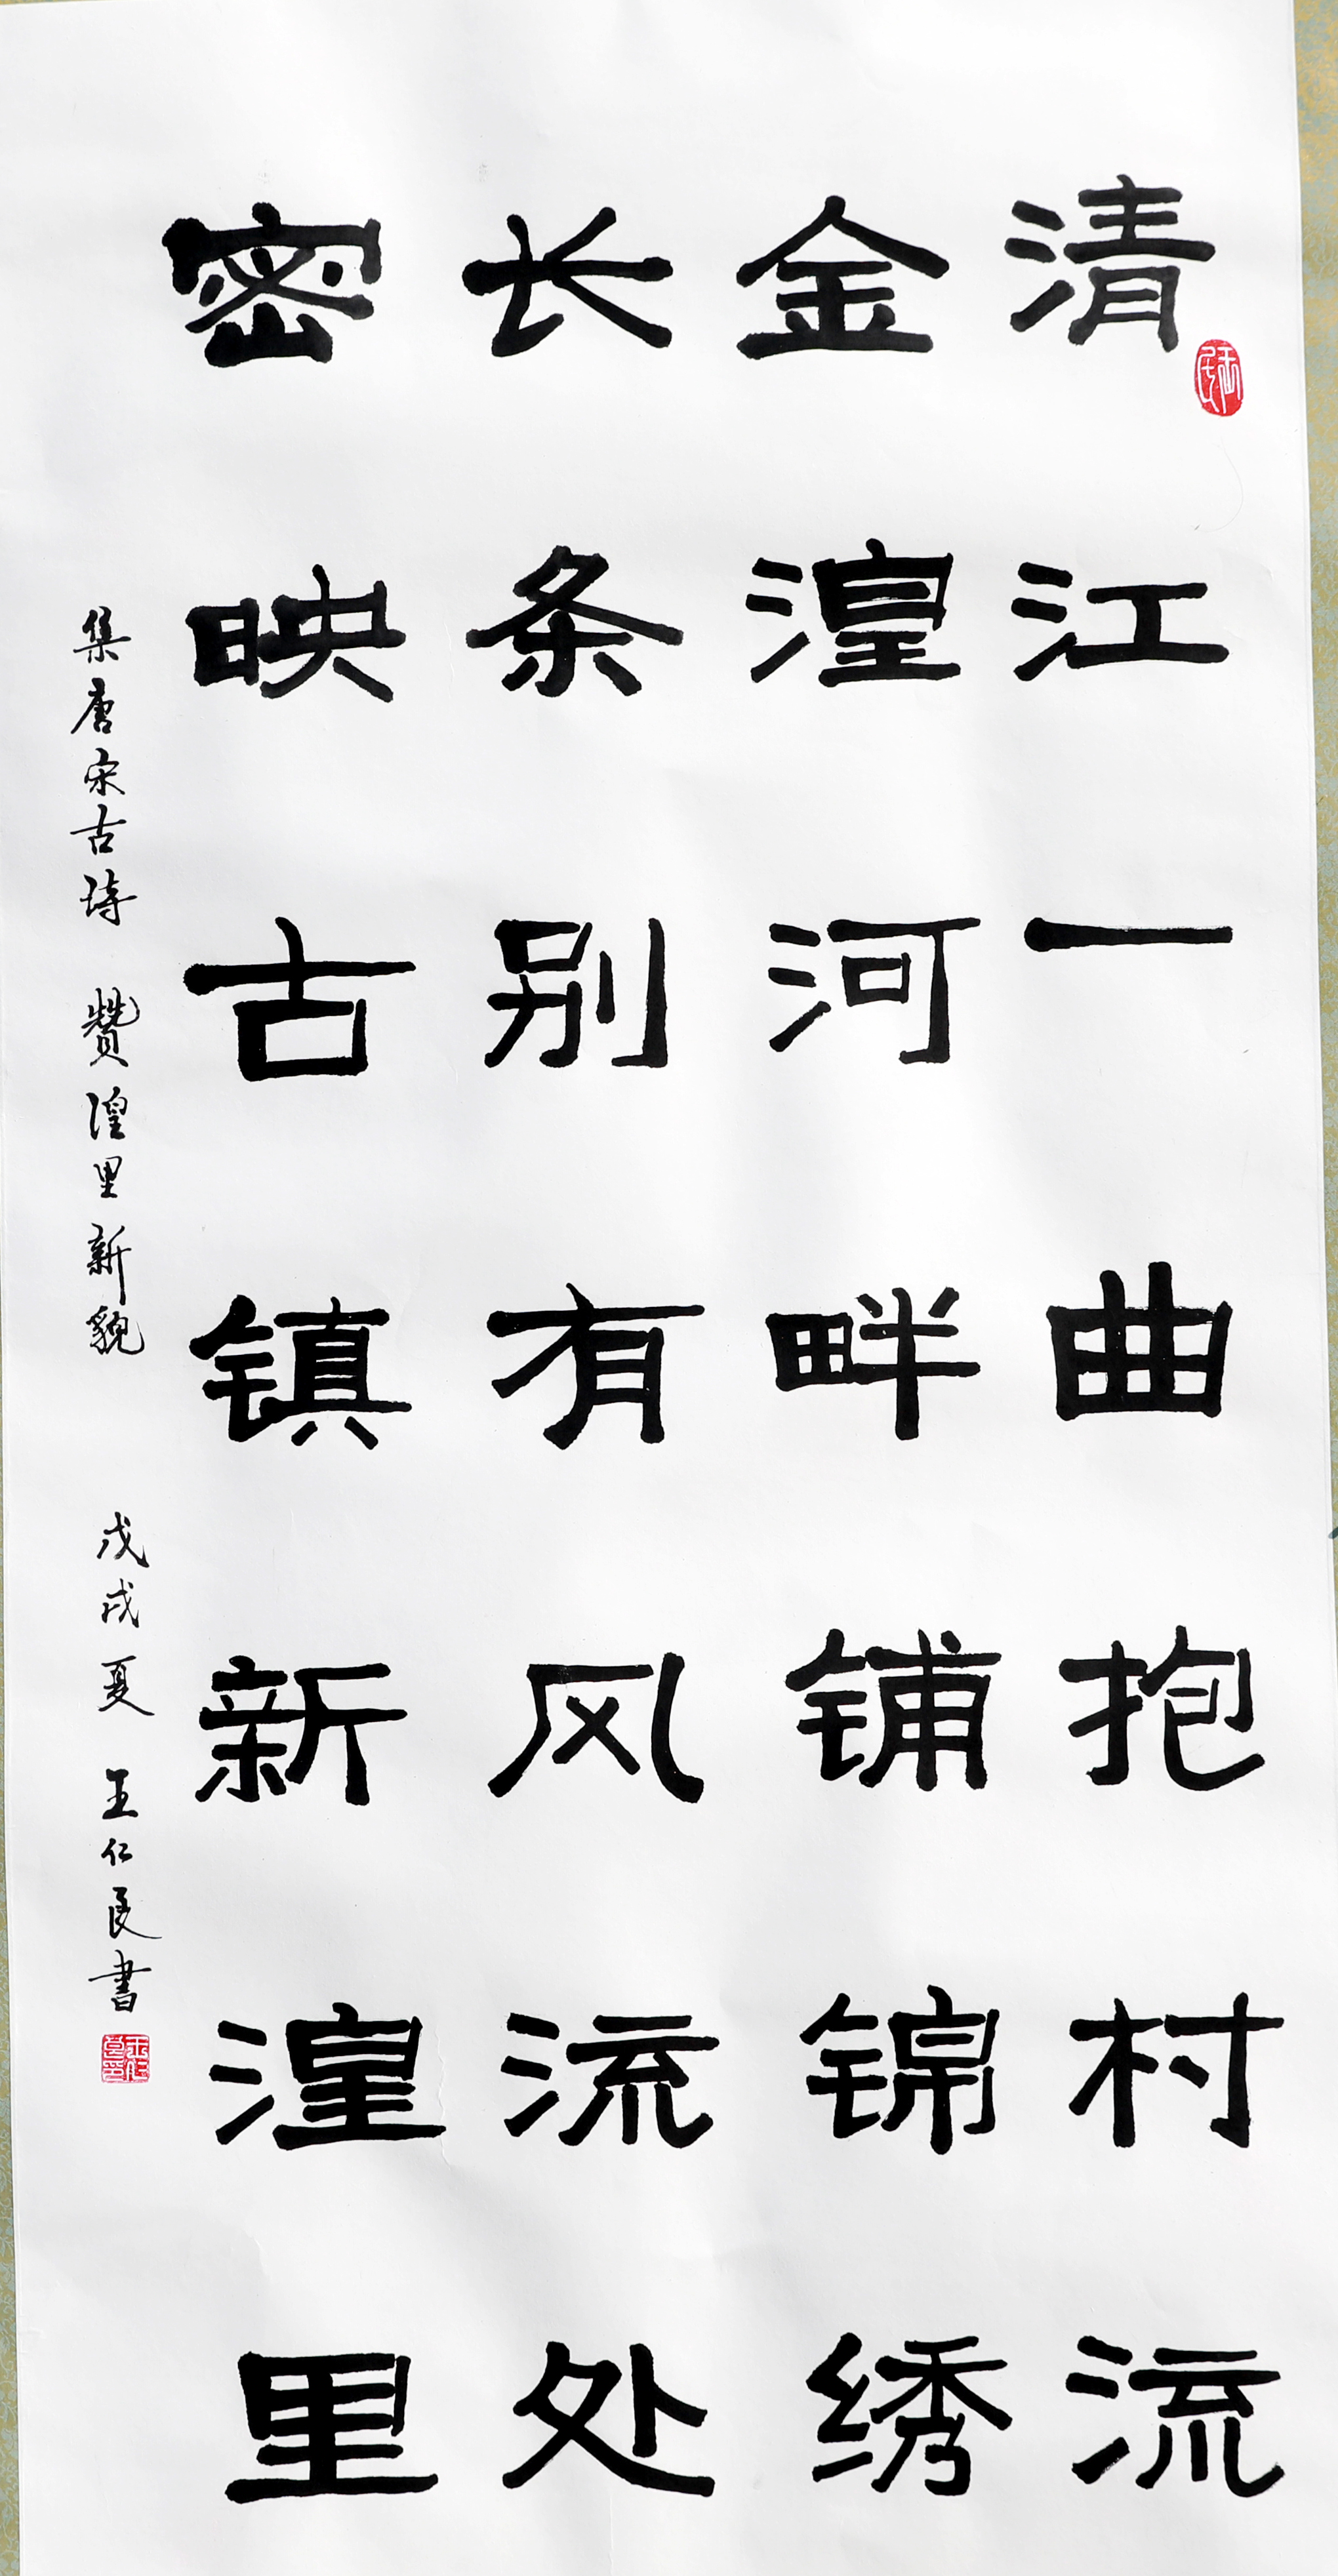 清江一曲抱村流
金湟河畔铺锦绣
长条别有风流处
密映古镇新湟里
集唐宋古诗 赞湟里新貌 戊戌夏 王仁良書